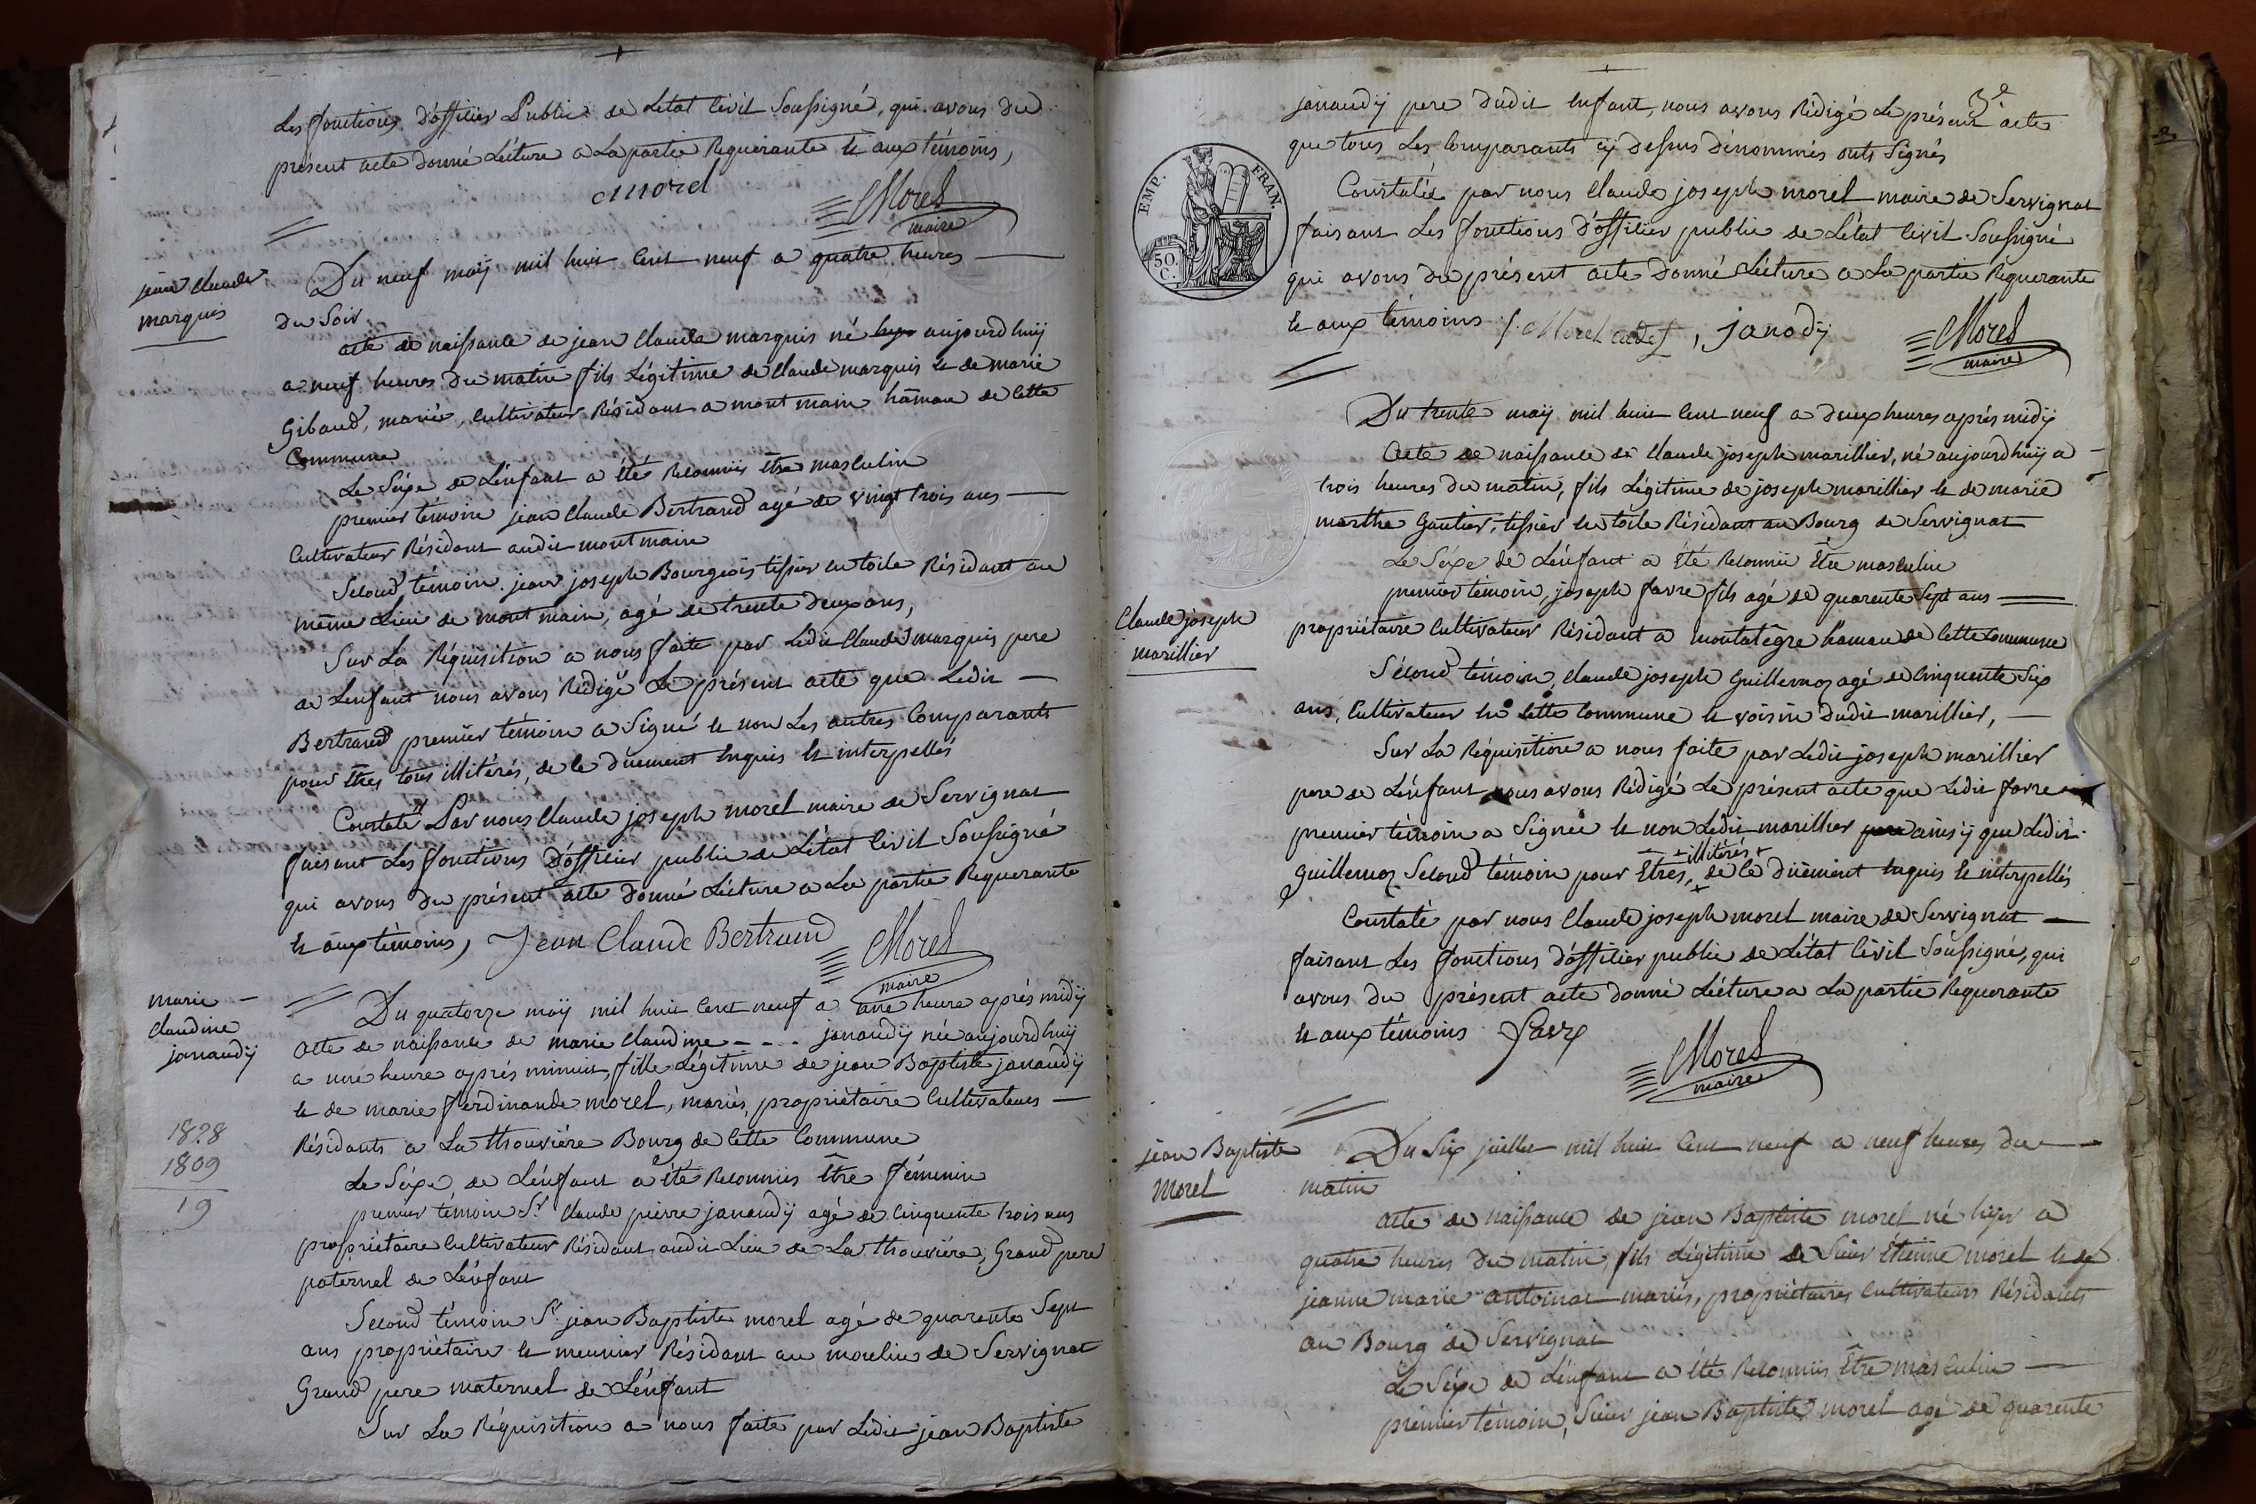 Les fonctions d'offitier Public de Létat Civil Soussigné, qui avons du
présent acte donné Lécture a La partie Requerante et aux témoins,
Morel
Morel
maire
jean Claude
marquis
Du neuf maÿ mil huit Cent neuf a quatre heures
du Soir
acte de naissance de jean Claude marquis né hyer aujourd'huÿ
a neuf heures du matin fils Légitime de Claude marquis et de marie
Gibaud, mariés, Cultivateur Résidant a mont main hâmau de Cette
Commune
Le Séxe de L'énfant a été Reconnüs être masculin
premier témoin jean Claude Bertrand agé de vingt trois ans
Cultivateur Résidant audit montmain
Second témoin jean joseph Bourgeois tissier en toile Résidant au
même Lieu de mont main, agé de trente deux ans,
Sur La Réquisition a nous faite par Ledit Claude marquis pere
de Lenfant nous avons Rédigé Le présent acte que Ledit
Bertrand premier témoin a Signé et non Les autres Comparants
pour êtres tous illitérés, de Ce duement enquis et interpellés
Constaté Par nous Claude joseph morel maire de Servignat
faisant Les fonctions D'offitier public de Létat Civil Soussigné
qui avons du présent acte donné Lécture a La partie Requerante
et aux témoins, Jean Claude Bertrand
Morel
maire
marie
Claudine
janaudÿ
Du quatorze maÿ mil huit Cent neuf a une heure aprés midÿ
Acte de naissance de marie Claudine - - - janaudÿ née aujourd'huÿ
a une heure aprés minuit, fille Légitime de jean Baptiste janaudÿ
et de marie ferdinande morel, mariés, propriétaire Cultivateurs
Résidants a La thouviére Bourg de Cette Commune
1828
1809
19
Le Séxe de L'énfant a été Reconnüs être féminin
premier témoin Sr. Claude pierre janaudÿ agé de Cinquente trois ans
propriétaire Cultivateur Résidant audit Lieu de La thouviére, Grand pere
paternel de L'énfant
Second témoin Sr. jean Baptiste morel agé de quarente Sept
ans propriétaire et meunier Résidant au moulin de Servignat
Grand pere maternel de L'énfant
Sur La Réquisition a nous faite par Ledit jean Baptiste
3e
janaudÿ pere dudit enfant, nous avons Rédigé Le présent acte
que tous Les Comparants cÿ dessus dénommés onts Signés
Constatée par nous Claude joseph morel maire de Servignat
faisant Les fonctions D'offitier public de Létat Civil Soussigné
qui avons du présent acte donné Lécture a La partie Requerante
et aux témoins J. Morel cadet, janodÿ
Morel
maire
EMP. FRAN.
50
C.
Du trente maÿ mil huit Cent neuf a deux heures aprés midÿ
Acte de naissance de Claude joseph marillier, né aujourd'huÿ a
trois heures du matin, fils Légitime de joseph marillier et de marie
marthe Gautier, tissier en toile Résidant au Bourg de Servignat
Le Séxe de L'énfant a été Reconnüs être masculin
premier témoin, joseph favre fils agé de quarente Sept ans
Claude joseph
marillier
propriétaire Cultivateur Résidant a montatêgre hamau de Cette Commune
Sécond témoin, Claude joseph Guillemoz agé de Cinquente Six
ans, Cultivateur en Cette Commune et voisin dudit marillier,
Sur La Réquisition a nous faite par Ledit joseph marillier
pere de L'énfant nous avons Rédigé Le présent acte que Ledit favre
premier témoin a Signée et non Ledit marillier pere ainsÿ que Ledit
illitérés
Guillemoz Second témoin pour êtres, de Ce düement enquis et interpellés
Constaté par nous Claude joseph morel maire de Servignat
faisant Les fonctions d'offitier public de Létat Civil Soussigné, qui
avons du présent acte donné Lécture a La partie Requerante
et aux témoins favre
Morel
maire
jean Baptiste
Morel
Du Six juillet mil huit Cent neuf a neuf heures du
matin
acte de naissance de jean Baptiste morel né hyer a
quatre heures du matin, fils Légitime de Sieur Étienne morel et de
jeanne marie antoinat mariés, propriétaires Cultivateurs Résidants
au Bourg de Servignat
Le Séxe de L'énfant a été Reconnüs être masculin
premier témoin, Sieur jean Baptiste morel agé de quarente